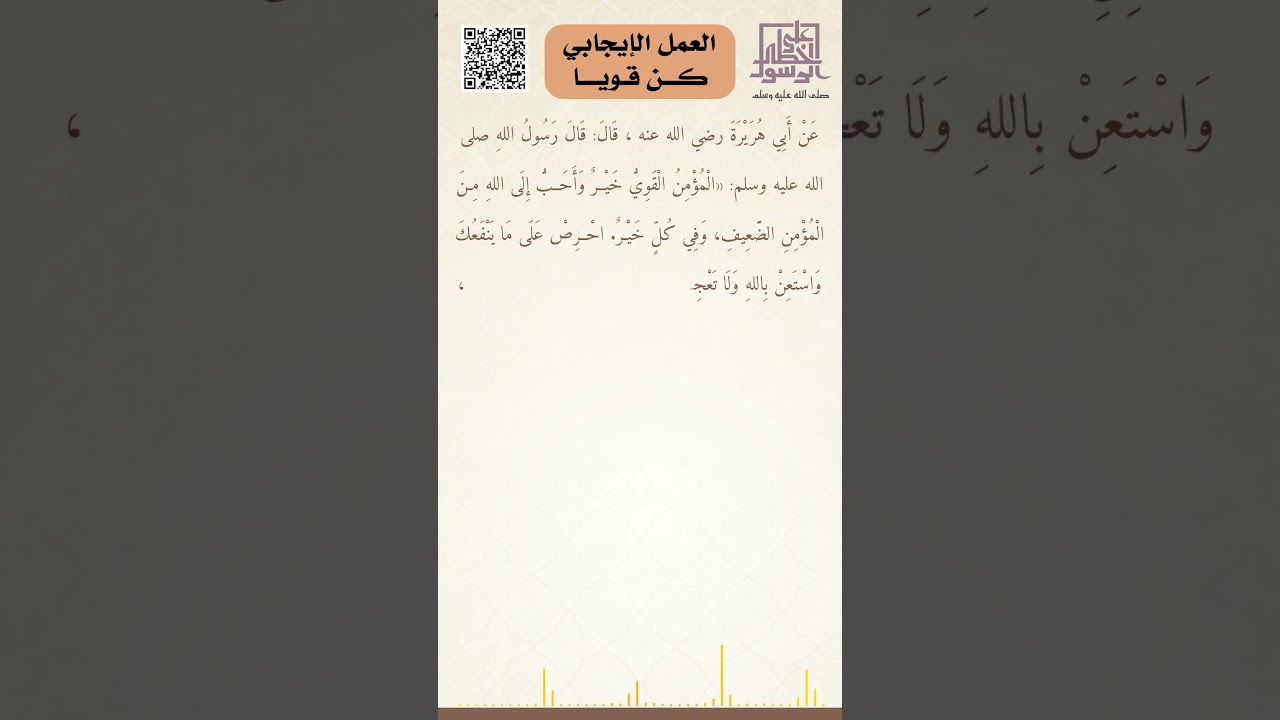 العمل الإيجابي
كـن قويـا
على خطى الرسول
صلى الله عليه وسلم
عَنْ أَبِي هُرَيْرَةَ رضي الله عنه ، قَالَ: قَالَ رَسُولُ اللهِ صلى
الله عليه وسلم: «الْمُؤْمِنُ الْقَوِيُّ خَيْـرٌ وَأَحَـبُّ إِلَى اللهِ مِـنَ
الْمُؤْمِنِ الضَّعِيفِ، وَفِي كُلٍّ خَيْـرٌ. احْـرِصْ عَلَى مَا يَنْفَعُكَ
وَاسْتَعِنْ بِاللهِ وَلَا تَعْجِـ ،